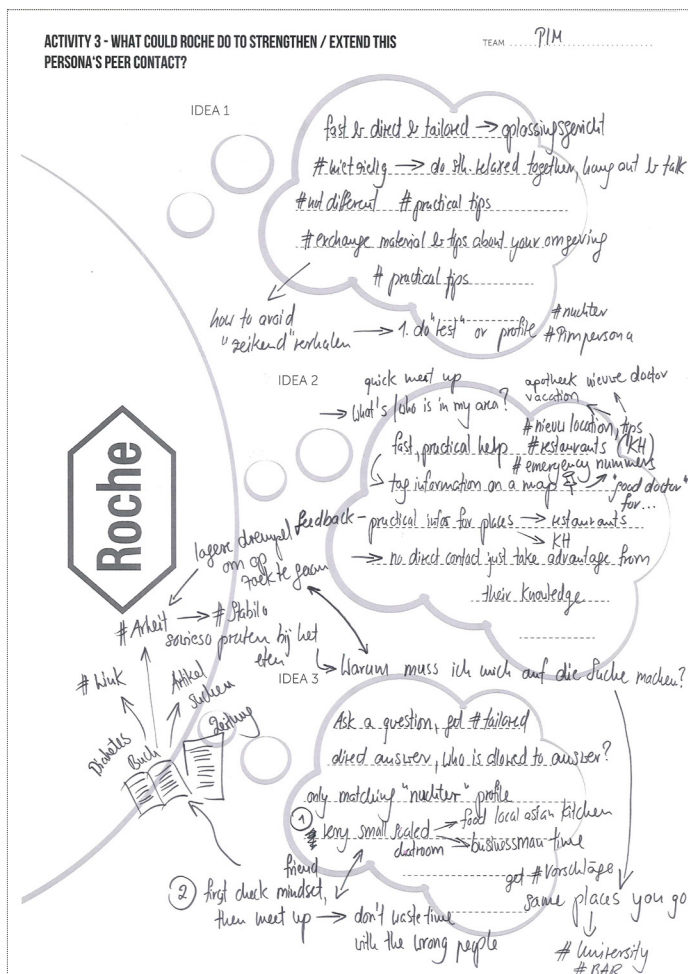 ACTIVITY 3 - WHAT COULD ROCHE DO TO STRENGTHEN / EXTEND THIS
PERSONA'S PEER CONTACT?
TEAM PIM
IDEA 1
fast & direct & tailored → oplossingsgericht
#niet zielig → do sth. relaxed together, hang out & talk
#not different #practical tips
#exchange material & tips about your omgeving
# practical tips
how to avoid
"zeikend" verhalen
→ 1. do "test" or profile
#nuchter
#Pimpersona
IDEA 2
quick meet up
→ What's/who is in my area?
apotheek nieuwe doctor
vacation
#nieuw location, tips
fast, practical help #restaurants (KH)
#emergency nummers
→ tag information on a map
→ "good doctor"
for...
feedback - practical infos for places → restaurants
→ KH
→ no direct contact just take advantage from
their knowledge
Roche
lagere drempel
om op
zoek te gaan
#Arbeit → #Stabilo
sowieso praten bij het
eten
→ Warum muss ich mich auf die Suche machen?
#Wink
Artikel
suchen
Zeitung
Diabetes
Buch
IDEA 3
Ask a question, get #tailored
direct answer, who is allowed to answer?
only matching "nuchter" profile
① very small scaled → food local asian kitchen
chatroom → businessman time
get #Vorschläge
same places you go
# University
# BAR
friend
② first check mindset,
then meet up → don't waste time
with the wrong people